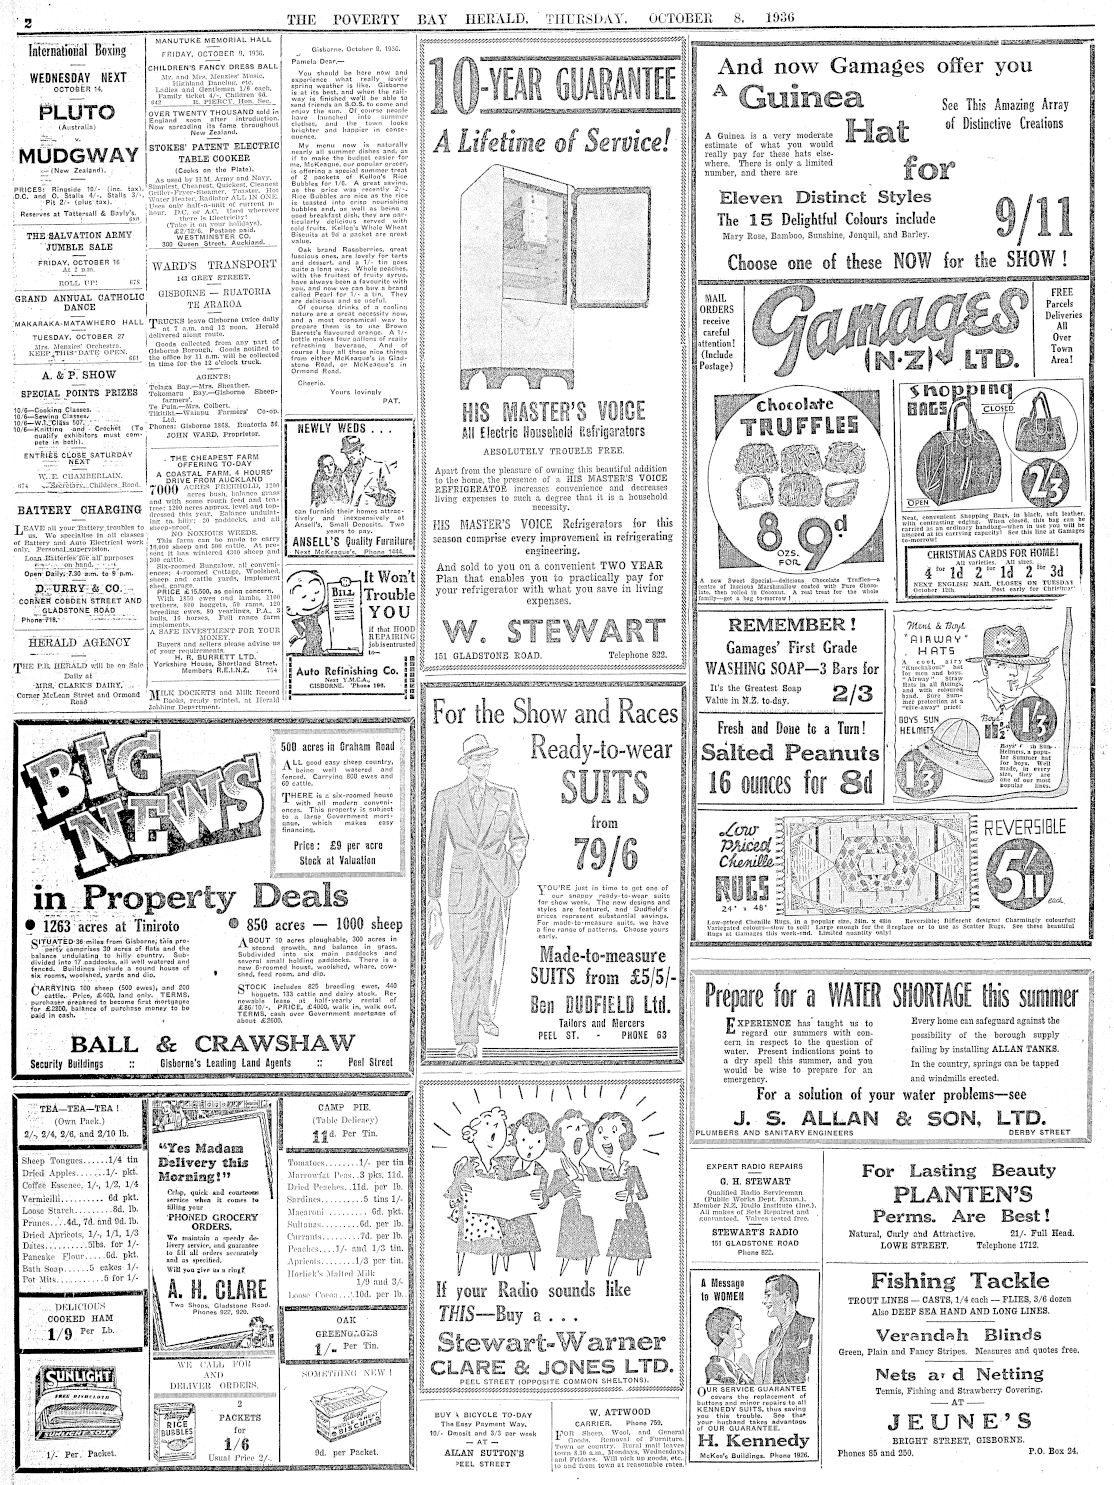 2
THE POVERTY BAY HERALD, THURSDAY, OCTOBER 8, 1936
International Boxing
WEDNESDAY NEXT
OCTOBER 14.
PLUTO
(Australia)
v.
MUDGWAY
(New Zealand).
PRICES: Ringside 10/- (inc. tax).
D.C. and O. Stalls 4/-, Stalls 3/-,
Pit 2/- (plus tax).
Reserves at Tattersall & Bayly's.
THE SALVATION ARMY
JUMBLE SALE
FRIDAY, OCTOBER 16
At 2 p.m.
ROLL UP! 678
GRAND ANNUAL CATHOLIC
DANCE
MAKARAKA-MATAWHERO HALL
TUESDAY, OCTOBER 27
Mrs. Menzies' Orchestra.
KEEP THIS DATE OPEN.
661
A. & P. SHOW
SPECIAL POINTS PRIZES
10/6—Cooking Classes.
10/6—Sewing Classes.
10/6—W.I. Class 507.
10/6—Knitting and Crochet (To
qualify exhibitors must com-
pete in both).
ENTRIES CLOSE SATURDAY
NEXT
W. E. CHAMBERLAIN,
674 Secretary, Childers Road.
BATTERY CHARGING
LEAVE all your Battery troubles to
us. We specialise in all classes
of Battery and Auto Electrical work
only. Personal supervision.
Loan Batteries for all purposes
on hand.
Open Daily, 7.30 a.m. to 9 p.m.
D. URRY & CO.
CORNER COBDEN STREET AND
GLADSTONE ROAD
Phone 718.
HERALD AGENCY
THE P.B. HERALD will be on Sale
Daily at
MRS. CLARK'S DAIRY,
Corner McLean Street and Ormond
Road
MANUTUKE MEMORIAL HALL
FRIDAY, OCTOBER 9, 1936.
CHILDREN'S FANCY DRESS BALL
Mr. and Mrs. Menzies' Music,
Highland Dancing, etc.
Ladies and Gentlemen 1/6 each,
Family ticket 4/-, Children 6d.
642 R. PIERCY, Hon. Sec.
OVER TWENTY THOUSAND sold in
England soon after introduction.
Now spreading its fame throughout
New Zealand.
STOKES' PATENT ELECTRIC
TABLE COOKER
(Cooks on the Plate).
As used by H.M. Army and Navy.
Simplest, Cheapest, Quickest, Cleanest
Griller-Fryer-Steamer, Toaster, Hot
Water Heater, Radiator ALL IN ONE.
Uses only half-a-unit of current p.
hour. D.C. or A.C. Used wherever
there is Electricity!
(Take it on your holidays).
£2/12/6. Postage paid.
WESTMINSTER CO.
300 Queen Street, Auckland.
WARD'S TRANSPORT
143 GREY STREET.
GISBORNE — RUATORIA
TE ARAROA
TRUCKS leave Gisborne twice daily
at 7 a.m. and 12 noon. Herald
delivered along route.
Goods collected from any part of
Gisborne Borough. Goods notified to
the office by 11 a.m. will be collected
in time for the 12 o'clock truck.
AGENTS:
Tolaga Bay.—Mrs. Sheather.
Tokomaru Bay.—Gisborne Sheep-
farmers'.
Te Puia.—Mrs. Colbert.
Tikitiki.—Waiapu Farmers' Co-op.
Ltd.
Phones: Gisborne 1868. Ruatoria 36.
JOHN WARD, Proprietor.
THE CHEAPEST FARM
OFFERING TO-DAY
A COASTAL FARM, 4 HOURS'
DRIVE FROM AUCKLAND
7000 ACRES FREEHOLD, 1200
acres bush, balance grass
and with some rough feed and tea-
tree; 1200 acres approx. level and top-
dressed this year. Balance undulat-
ing to hilly; 30 paddocks, and all
sheep-proof.
NO NOXIOUS WEEDS.
This farm can be made to carry
10,000 sheep and 500 cattle. At pre-
sent it has wintered 4300 sheep and
300 cattle.
Six-roomed Bungalow, all conveni-
ences; 4-roomed Cottage, Woolshed,
sheep and cattle yards, implement
shed, garage.
PRICE £15,500, as going concern.
With 1850 ewes and lambs, 1100
wethers, 800 hoggets, 50 rams, 120
breeding ewes, 80 yearlings, P.A., 3
bulls, 16 horses. Full range farm
implements.
A SAFE INVESTMENT FOR YOUR
MONEY.
Buyers and sellers please advise us
of your requirements
H. R. BURRETT LTD.
Yorkshire House, Shortland Street.
Members R.E.I.N.Z. 754
MILK DOCKETS and Milk Record
Books, ready printed, at Herald
Jobbing Department.
Gisborne, October 8, 1936.
Pamela Dear,—
You should be here now and
experience what really lovely
spring weather is like. Gisborne
is at its best, and when the rail-
way is finished we'll be able to
send friends an S.O.S. to come and
enjoy the sun. Of course people
have launched into summer
clothes, and the town looks
brighter and happier in conse-
quence.
My menu now is naturally
nearly all summer dishes and, as
if to make the budget easier for
me, McKeague, our popular grocer,
is offering a special summer treat
of 2 packets of Kellog's Rice
Bubbles for 1/6. A great saving,
as the price was recently 2/-.
Rice Bubbles are nice as the rice
is toasted into crisp nourishing
bubbles and, as well as being a
good breakfast dish, they are par-
ticularly delicious served with
cold fruits. Kellog's Whole Wheat
Biscuits at 9d a packet are great
value.
Oak brand Raspberries, great
luscious ones, are lovely for tarts
and dessert, and a 1/- tin goes
quite a long way. Whole peaches,
with the fruitest of fruity syrup,
have always been a favourite with
you, and now we can buy a brand
called Pearl for 1/- a tin. They
are delicious and so useful.
Of course drinks of a cooling
nature are a great necessity now,
and a most economical way to
prepare them is to use Brown
Barrett's flavoured orange. A 1/-
bottle makes four gallons of really
refreshing beverage. And of
course I buy all these nice things
from either McKeague's in Glad-
stone Road, or McKeague's in
Ormond Road.
Cheerio.
Yours lovingly
PAT.
NEWLY WEDS . . .
can furnish their homes attrac-
tively and inexpensively at
Ansell's. Small Deposits. Two
years to pay.
ANSELL'S Quality Furniture
Next McGruer's. Phone 1444.
BILL
It Won't
Trouble
YOU
if that HOOD
REPAIRING
job is entrusted
to—
Auto Refinishing Co.
Next Y.M.C.A.,
GISBORNE. 'Phone 196.
10-YEAR GUARANTEE
A Lifetime of Service!
HIS MASTER'S VOICE
All Electric Household Refrigerators
ABSOLUTELY TROUBLE FREE.
Apart from the pleasure of owning this beautiful addition
to the home, the presence of a HIS MASTER'S VOICE
REFRIGERATOR increases convenience and decreases
living expenses to such a degree that it is a household
necessity.
HIS MASTER'S VOICE Refrigerators for this
season comprise every improvement in refrigerating
engineering.
And sold to you on a convenient TWO YEAR
Plan that enables you to practically pay for
your refrigerator with what you save in living
expenses.
W. STEWART
151 GLADSTONE ROAD. Telephone 822.
And now Gamages offer you
A Guinea
Hat
for
See This Amazing Array
of Distinctive Creations
A Guinea is a very moderate
estimate of what you would
really pay for these hats else-
where. There is only a limited
number, and there are
Eleven Distinct Styles
The 15 Delightful Colours include
Mary Rose, Bamboo, Sunshine, Jonquil, and Barley.
9/11
Choose one of these NOW for the SHOW!
MAIL
ORDERS
receive
careful
attention!
(Include
Postage)
Gamages
(N·Z) LTD.
FREE
Parcels
Deliveries
All
Over
Town
Area!
Chocolate
TRUFFLES
8 OZS. FOR 9d
A new Sweet Special—delicious Chocolate Truffles—a
centre of luscious Marshmallow coated with Pure Choco-
late, then rolled in Coconut. A real treat for the whole
family—get a bag to-morrow!
Shopping
BAGS
CLOSED
OPEN
2/3
Neat, convenient Shopping Bags, in black, soft leather,
with contrasting edging. When closed, this bag can be
carried as an ordinary handbag—when in use you will be
amazed at its carrying capacity! See this line at Gamages
to-morrow!
CHRISTMAS CARDS FOR HOME!
All varieties. All sizes.
4 for 1d 2 for 1d 2 for 3d
NEXT ENGLISH MAIL CLOSES ON TUESDAY
October 13th. Post early for Christmas
REMEMBER!
Gamages' First Grade
WASHING SOAP—3 Bars for
It's the Greatest Soap
Value in N.Z. to-day.
2/3
Fresh and Done to a Turn!
Salted Peanuts
16 ounces for 8d
Mens & Boys
"AIRWAY"
HATS
A cool, airy
"Knockabout" hat
for men and boys.
"Airway" Straw
Hats in all fittings,
and with coloured
band. Sure Sum-
mer protection at a
"give-away" price!
1/3
BOYS SUN
HELMETS
1/3
Boys' Sun
Helmets, a popu-
lar Summer hat
for boys. Well
made, in every
size, they are
one of our most
popular lines.
Low
Priced
Chenille
RUGS
24" x 48"
REVERSIBLE
5/11 each
Low-priced Chenille Rugs, in a popular size, 24in. x 48in Reversible; Different designs! Charmingly colourful!
Variegated colours—slow to soil! Large enough for the fireplace or to use as Scatter Rugs. See these beautiful
Rugs at Gamages this week-end. Limited quantity only!
BIG
NEWS
in Property Deals
500 acres in Graham Road
ALL good easy sheep country,
being well watered and
fenced. Carrying 800 ewes and
60 cattle.
THERE is a six-roomed house
with all modern conveni-
ences. This property is subject
to a large Government mort-
gage, which makes easy
financing.
Price: £9 per acre
Stock at Valuation
● 1263 acres at Tiniroto
SITUATED 36 miles from Gisborne, this pro-
perty comprises 30 acres of flats and the
balance undulating to hilly country. Sub-
divided into 17 paddocks, all well watered and
fenced. Buildings include a sound house of
six rooms, woolshed, yards and dip.
CARRYING 100 sheep (500 ewes), and 200
cattle. Price, £6400, land only. TERMS,
purchaser prepared to become first mortgagee
for £2800, balance of purchase money to be
paid in cash.
● 850 acres — 1000 sheep
ABOUT 10 acres ploughable, 300 acres in
second growth, and balance in grass.
Subdivided into six main paddocks and
several small holding paddocks. There is a
new 6-roomed house, woolshed, whare, cow-
shed, feed room, and dip.
STOCK includes 825 breeding ewes, 440
hoggets, 133 cattle and dairy stock. Re-
newable lease at half-yearly rental of
£86/10/-. PRICE, £4000, walk in, walk out.
TERMS, cash over Government mortgage of
about £2600.
BALL & CRAWSHAW
Security Buildings :: Gisborne's Leading Land Agents :: Peel Street
For the Show and Races
Ready-to-wear
SUITS
from
79/6
YOU'RE just in time to get one of
our snappy ready-to-wear suits
for show week. The new designs and
styles are featured, and Dudfield's
prices represent substantial savings.
For made-to-measure suits, we have
a fine range of patterns. Choose yours
early.
Made-to-measure
SUITS from £5/5/-
Ben DUDFIELD Ltd.
Tailors and Mercers
PEEL ST. - PHONE 63
Prepare for a WATER SHORTAGE this summer
EXPERIENCE has taught us to
regard our summers with con-
cern in respect to the question of
water. Present indications point to
a dry spell this summer, and you
would be wise to prepare for an
emergency.
Every home can safeguard against the
possibility of the borough supply
failing by installing ALLAN TANKS.
In the country, springs can be tapped
and windmills erected.
For a solution of your water problems—see
J. S. ALLAN & SON, LTD.
PLUMBERS AND SANITARY ENGINEERS DERBY STREET
TEA—TEA—TEA!
(Own Pack.)
2/-, 2/4, 2/6, and 2/10 lb.
Sheep Tongues......1/4 tin
Dried Apples.......1/- pkt.
Coffee Essence, 1/-, 1/2, 1/4
Vermicilli.........6d pkt.
Loose Starch........8d. lb.
Prunes...4d., 7d. and 9d. lb.
Dried Apricots, 1/-, 1/1, 1/3
Dates..........5lbs. for 1/-
Pancake Flour.....6d. pkt.
Bath Soap......5 cakes 1/-
Pot Mits.........5 for 1/-
DELICIOUS
COOKED HAM
1/9 Per Lb.
SUNLIGHT
FREE DISHCLOTH
SUNLIGHT SOAP
1/- Per. Packet.
"Yes Madam
Delivery this
Morning!"
Crisp, quick and courteous
service when it comes to
filling your
'PHONED GROCERY
ORDERS.
We maintain a speedy de-
livery service, and guarantee
to fill all orders accurately
and as specified.
Will you give us a ring?
A. H. CLARE
Two Shops, Gladstone Road.
Phones 922, 920.
WE CALL FOR
AND
DELIVER ORDERS.
Kellogg's
RICE
BUBBLES
2
PACKETS
for
1/6
Usual Price 2/-.
CAMP PIE.
(Table Delicacy)
11d. Per Tin.
Tomatoes........1/- per tin
Marrowfat Peas...3 pkts. 11d.
Dried Peaches...11d. per lb.
Sardines..........5 tins 1/-
Macaroni.........6d. pkt.
Sultanas........6d. per lb.
Currants........7d. per lb.
Peaches...1/- and 1/3 tin.
Apricots......1/3 per tin.
Horlick's Malted Milk
1/9 and 3/-
Loose Cocoa...10d. per lb.
OAK
GREENGAGES
1/- Per Tin.
SOMETHING NEW!
9d. per Packet.
If your Radio sounds like
THIS—Buy a . . .
Stewart-Warner
CLARE & JONES LTD.
PEEL STREET (OPPOSITE COMMON SHELTONS).
BUY A BICYCLE TO-DAY
The Easy Payment Way.
10/- Deposit and 3/3 per week
— AT —
ALLAN SUTTON'S
PEEL STREET
W. ATTWOOD
CARRIER. Phone 759.
FOR Sheep, Wool, and General
Goods. Removal of Furniture.
Town or country. Rural mail leaves
town 8.30 a.m., Mondays, Wednesdays,
and Fridays. Will pick up goods, etc.,
to and from town at reasonable rates.
EXPERT RADIO REPAIRS
G. H. STEWART
Qualified Radio Serviceman
(Public Works Dept. Exam.).
Member N.Z. Radio Institute (Inc.).
All makes of Sets Repaired and
guaranteed. Valves tested free.
STEWART'S RADIO
151 GLADSTONE ROAD
Phone 822.
A Message
to WOMEN
OUR SERVICE GUARANTEE
covers the replacement of
buttons and minor repairs to all
KENNEDY SUITS, thus saving
you this trouble. See that
your husband takes advantage
of OUR GUARANTEE.
H. Kennedy
McKee's Buildings. Phone 1926.
For Lasting Beauty
PLANTEN'S
Perms. Are Best!
Natural, Curly and Attractive. 21/- Full Head.
LOWE STREET. Telephone 1712.
Fishing Tackle
TROUT LINES — CASTS, 1/4 each — FLIES, 3/6 dozen
Also DEEP SEA HAND AND LONG LINES.
Verandah Blinds
Green, Plain and Fancy Stripes. Measures and quotes free.
Nets and Netting
Tennis, Fishing and Strawberry Covering.
— AT —
JEUNE'S
BRIGHT STREET, GISBORNE.
Phones 85 and 250. P.O. Box 24.